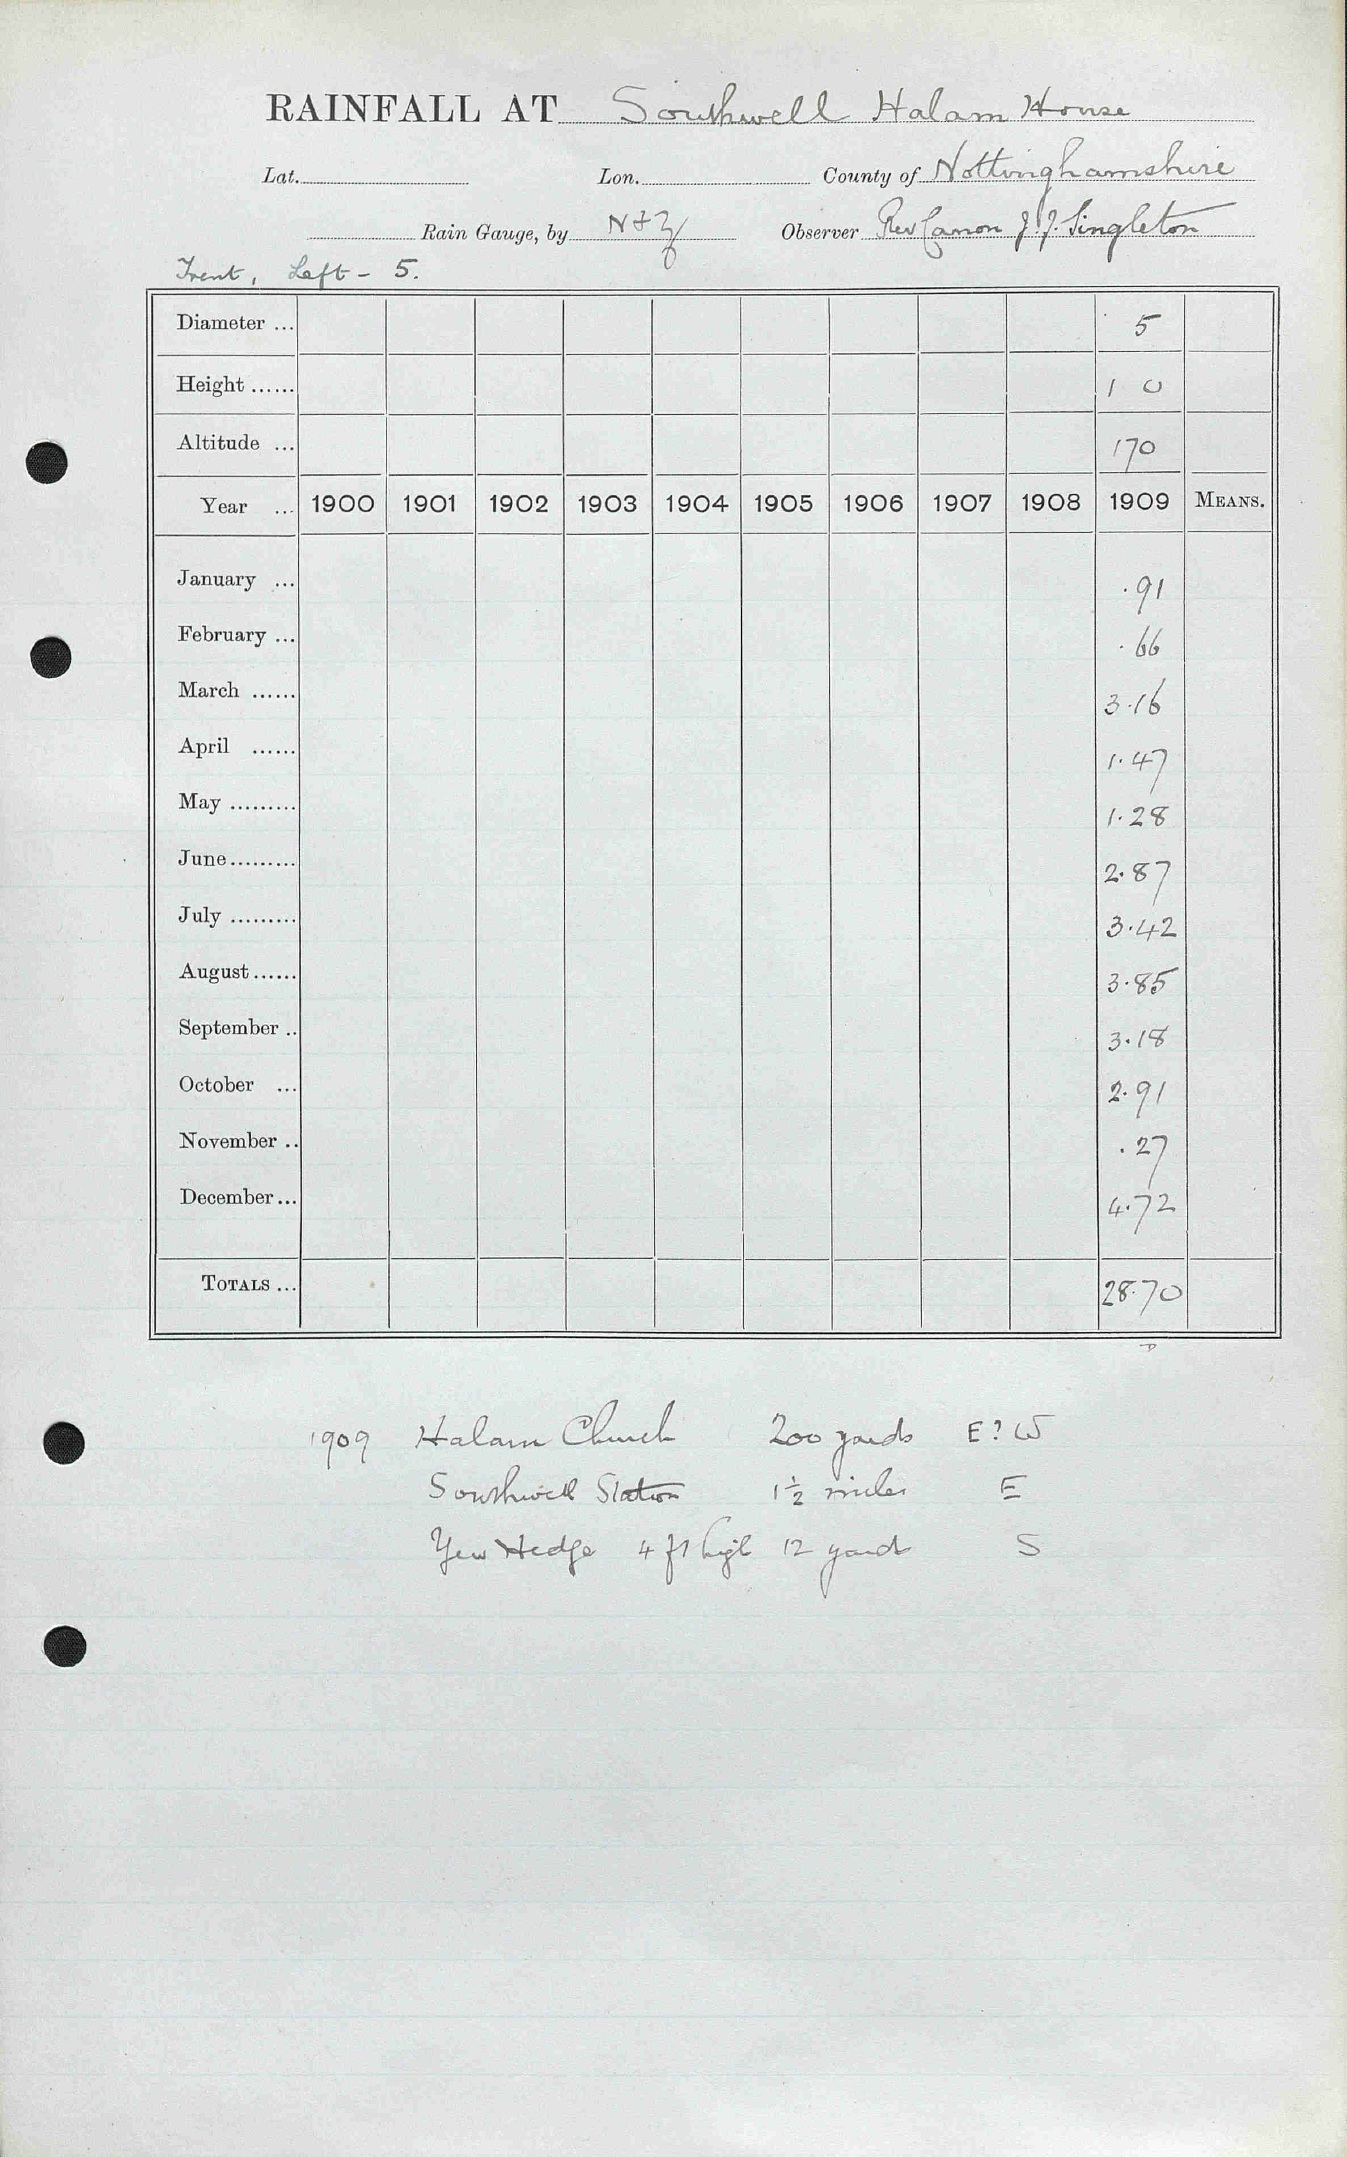 RAINFALL AT Southwell Halam House
Lat. Lon. County of Nottinghamshire
Rain Gauge, by N & Z Observer Rev Canon J. J. Singleton
Trent, Left - 5.
Diameter ... 5
Height ...... 1 0
Altitude ... 170
Year ... 1900 1901 1902 1903 1904 1905 1906 1907 1908 1909 MEANS.
January ... .91
February ... .66
March ...... 3.16
April ...... 1.47
May ......... 1.28
June ......... 2.87
July ......... 3.42
August ...... 3.85
September .. 3.18
October ... 2.91
November .. .27
December ... 4.72
TOTALS ... 28.70
1909 Halam Church 200 yards E? W
Southwell Station 1½ miles E
Yew Hedge 4 ft high 12 yards S